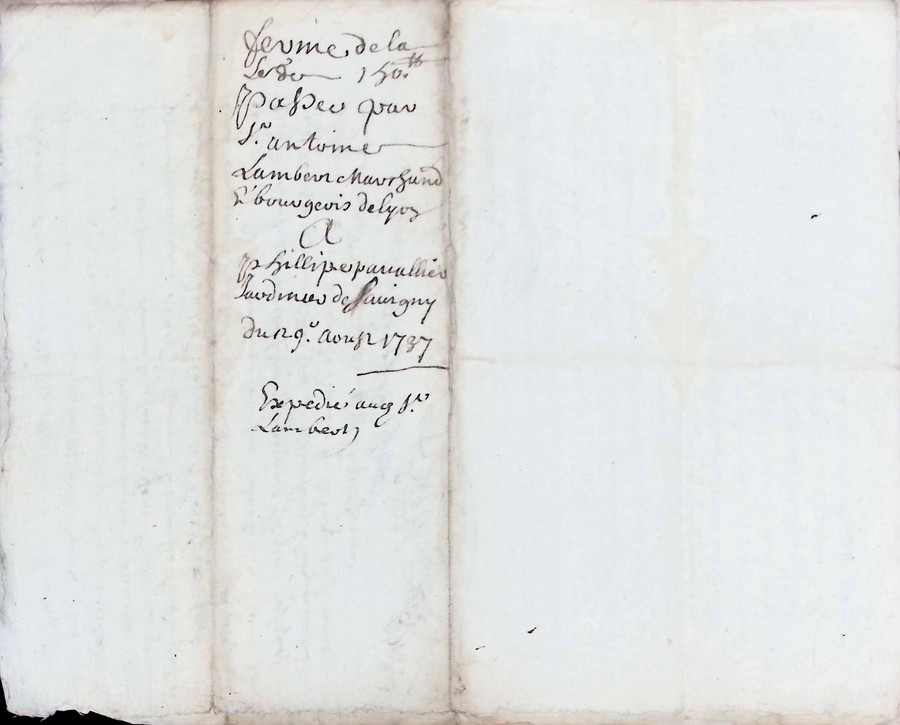 ferme de la
150ᵗᵗ
passée par
Sʳ. antoine
Lambert Marchand
& bourgeois de lyon
A
phillipe pavallier
Jardinier de Savigny
du 29ᵉ. aoust 1737
Expedié audᵗ Sʳ.
Lambert